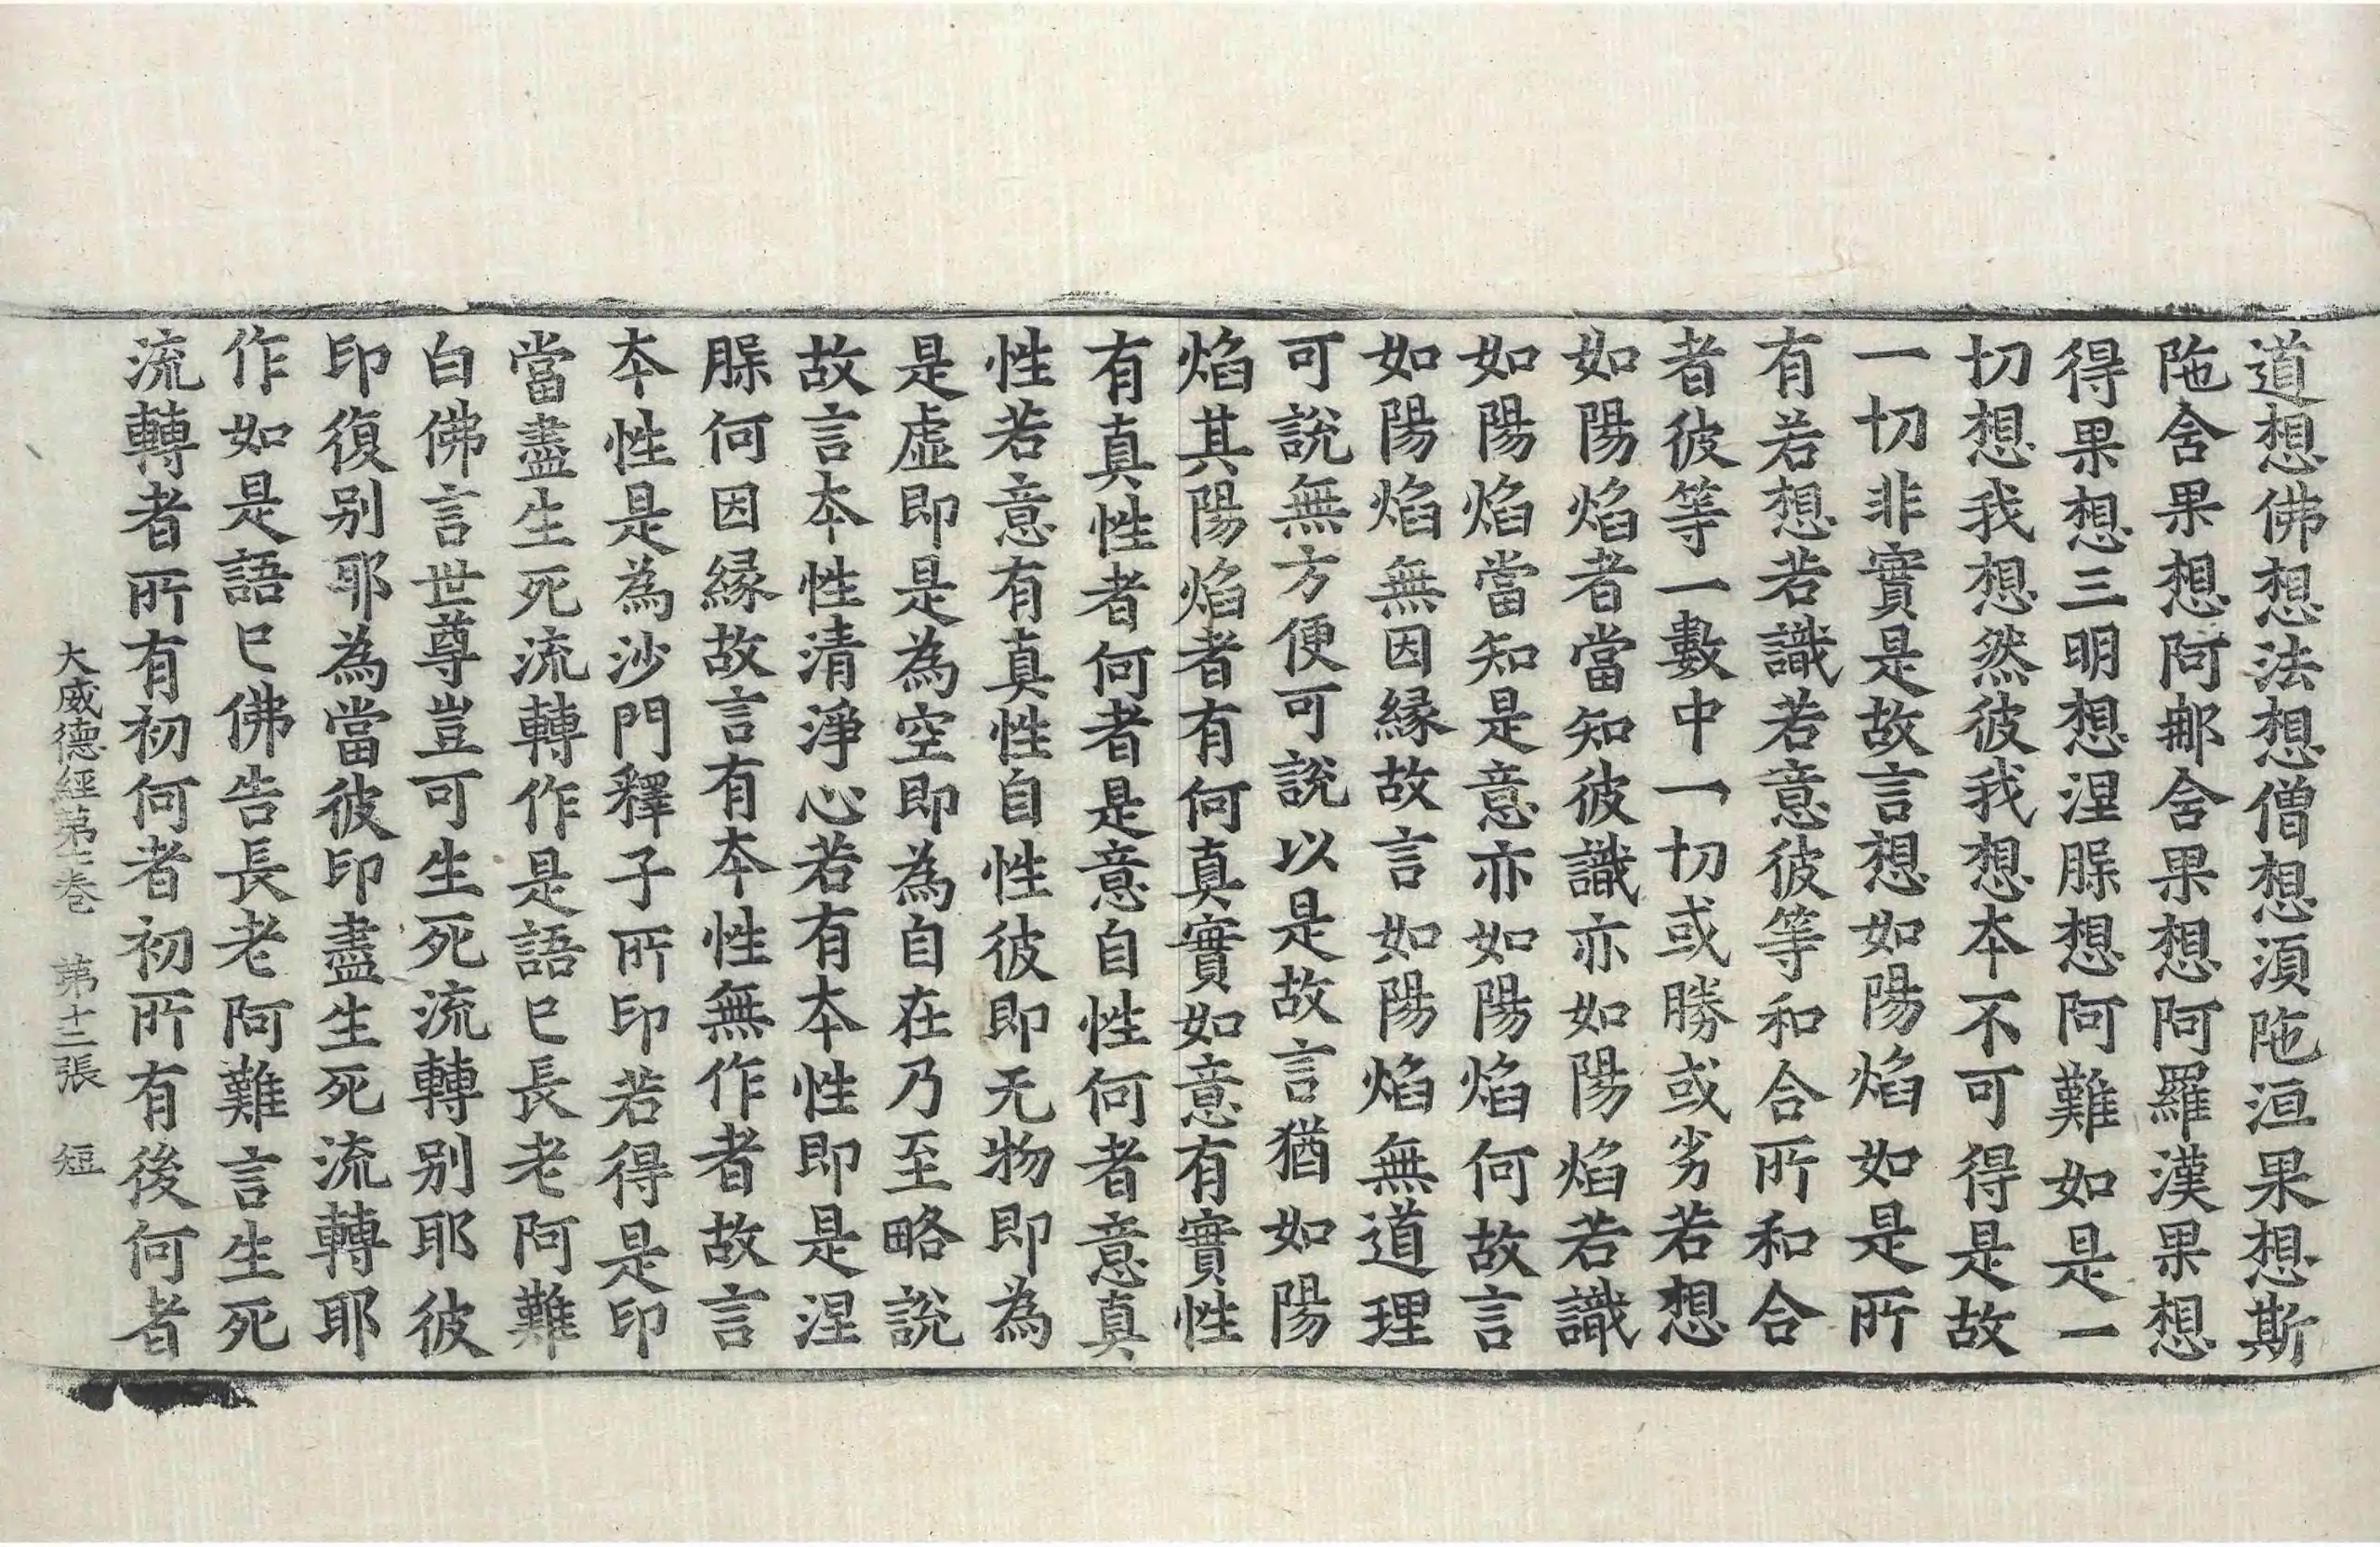 道想佛想法想僧想湏陁洹果想斯
陁舍果想阿那舍果想阿羅漢果想
得果想三明想涅脲想阿難如是一
切想我想然彼我想夲不可得是故
一切非實是故言想如陽焰如是所
有若想若識若意彼等和合所和合
者彼等一數中一切或勝或劣若想
如陽焰者當知彼識亦如陽焰若識
如陽焰當知是意亦如陽焰何故言
如陽焰無因緣故言如陽焰無道理
可說無方便可說以是故言猶如陽
焰其陽焰者有何真實如意有實性
有真性者何者是意自性何者意真
性若意有真性自性彼即无物即為
是虛即是為空即為自在乃至略說
故言夲性清淨心若有夲性即是涅
脲何因緣故言有夲性無作者故言
夲性是為沙門釋子所印若得是印
當盡生死流轉作是語已長老阿難
白佛言世尊豈可生死流轉别耶彼
印復别耶為當彼印盡生死流轉耶
作如是語已佛告長老阿難言生死
流轉者所有初何者初所有後何者
大威德經第十七卷　第十二張　短